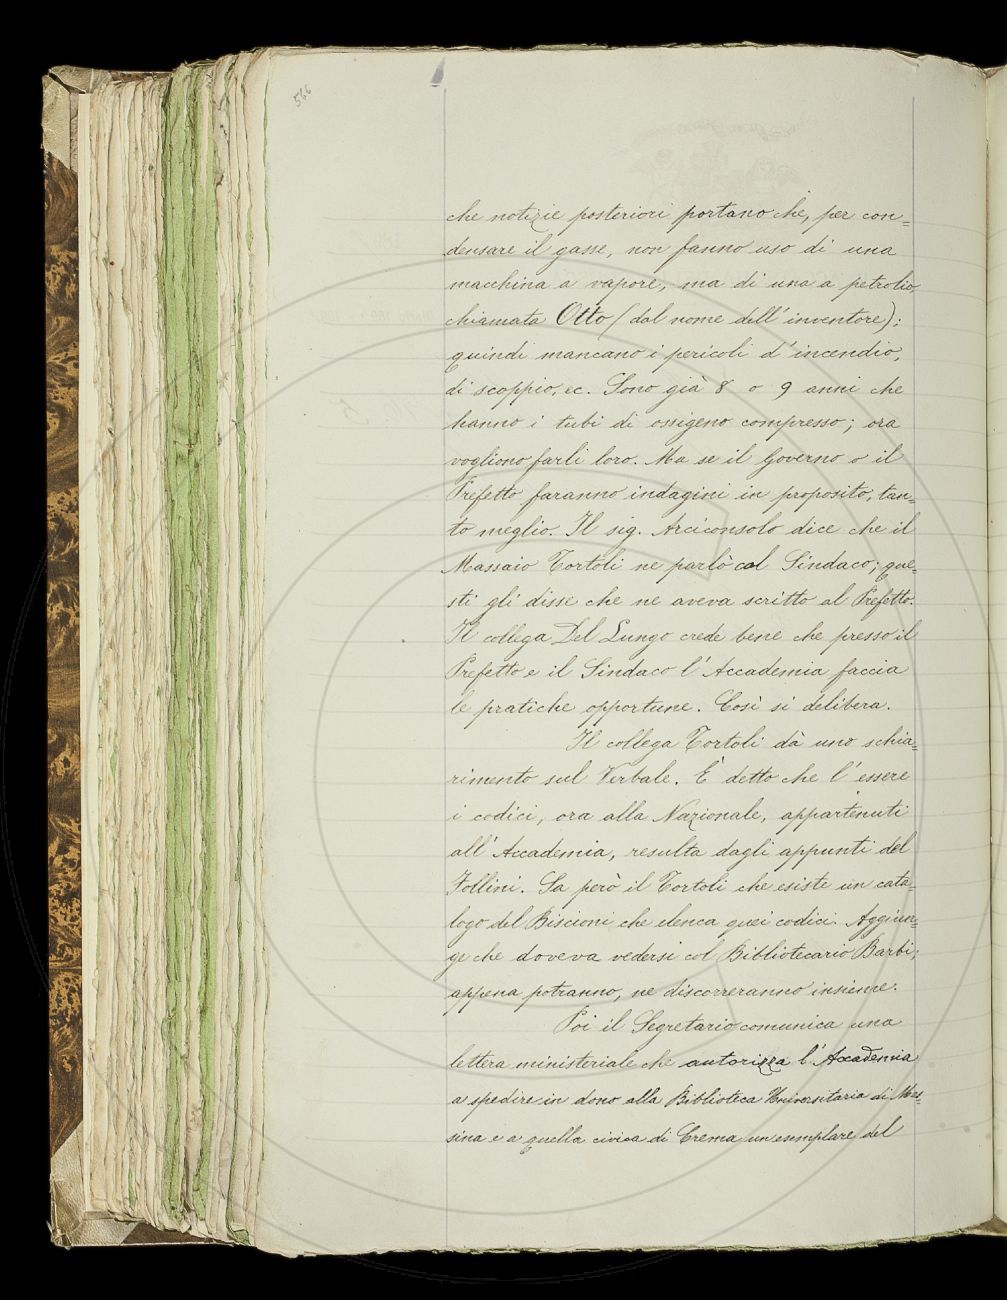 566
che notizie posteriori portano che, per con=
densare il gasse, non fanno uso di una
macchina a vapore, ma di una a petrolio,
chiamata Otto (dal nome dell'inventore);
quindi mancano i pericoli d'incendio,
di scoppio, ec. Sono già 8 o 9 anni che
hanno i tubi di ossigeno compresso; ora
vogliono farli loro. Ma se il Governo o il
Prefetto faranno indagini in proposito, tan=
to meglio. Il sig. Arciconsolo dice che il
Massaio Tortoli ne parlò col Sindaco; que=
sti gli disse che ne aveva scritto al Prefetto.
Il collega Del Lungo crede bene che presso il
Prefetto e il Sindaco l'Accademia faccia
le pratiche opportune. Così si delibera.
Il collega Tortoli dà uno schia=
rimento sul Verbale. È detto che l'essere
i codici, ora alla Nazionale, appartenuti
all'Accademia, resulta dagli appunti del
Follini. Sa però il Tortoli che esiste un cata=
logo del Biscioni che elenca quei codici. Aggiun=
ge che doveva vedersi col Bibliotecario Barbi;
appena potranno, ne discorreranno insieme.
Poi il Segretario comunica una
lettera ministeriale che autorizza l'Accademia
a spedire in dono alla Biblioteca Universitaria di Mes=
sina e a quella civica di Crema un esemplare del